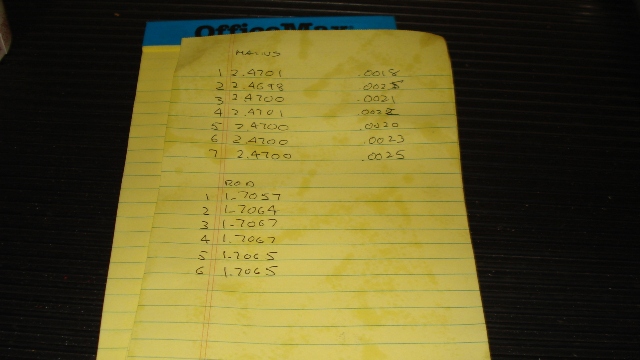 OfficeMax
MAINS
1 2.4701 .0018
2 2.4698 .0025
3 2.4700 .0021
4 2.4701 .0022
5 2.4700 .0020
6 2.4700 .0023
7 2.4700 .0025
ROD
1 1.7057
2 1.7064
3 1.7067
4 1.7067
5 1.7065
6 1.7065